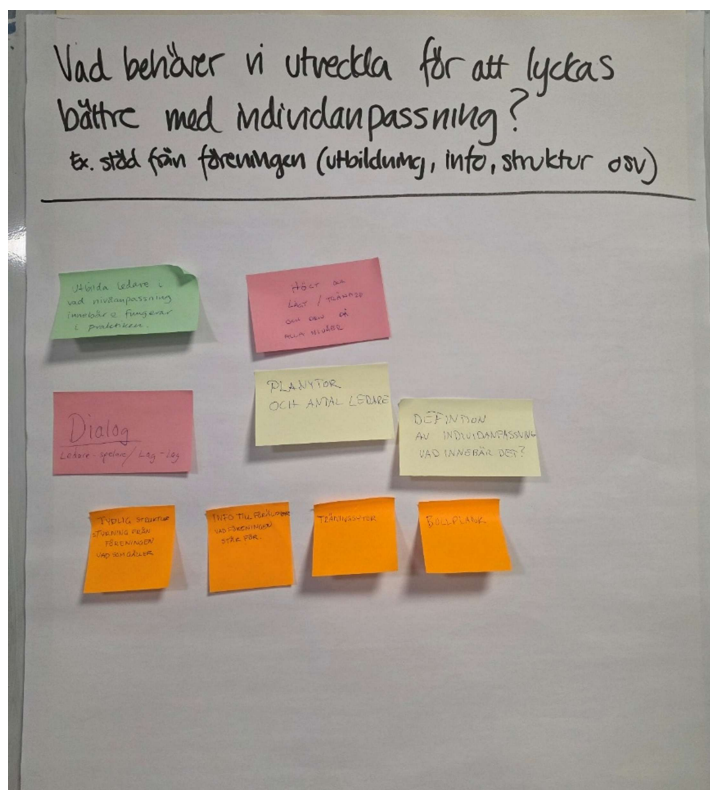 Vad behöver vi utveckla för att lyckas
bättre med individanpassning?
Ex. stöd från föreningen (utbildning, info, struktur osv)
Utbilda ledare i
vad nivåanpassning
innebär & fungerar
i praktiken.
HÖGT OCH
LÅGT / TRÄNARE
ALLA NIVÅER
Dialog
Ledare-spelare / Lag-Lag
PLANYTOR
OCH ANTAL LEDARE
DEFINITION
AV INDIVIDANPASSNING
VAD INNEBÄR DET?
TYDLIG STRUKTUR
STYRNING FRÅN
FÖRENINGEN
VAD SOM GÄLLER
INFO TILL FÖRÄLDRAR
VAD FÖRENINGEN
STÅR FÖR.
TRÄNINGSYTOR
BOLLPLANK